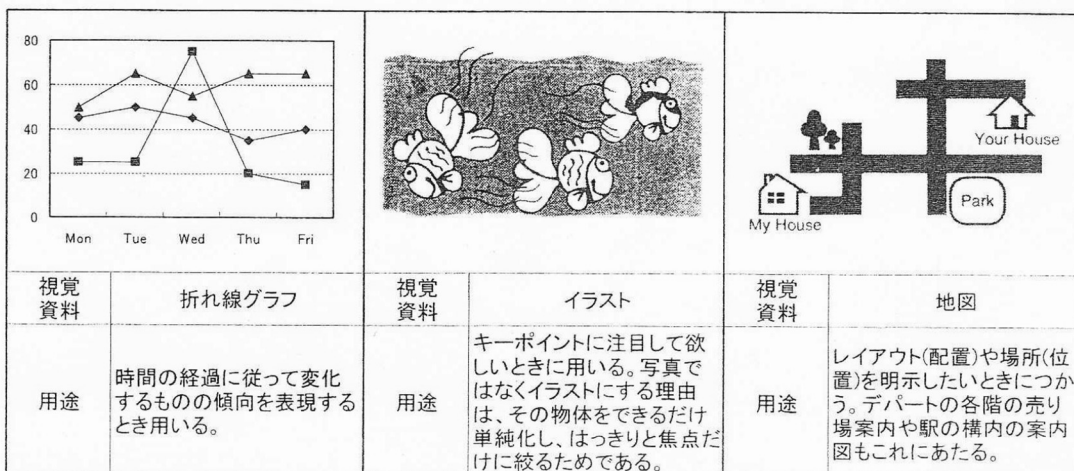 80
60
40
20
0
Mon Tue Wed Thu Fri
Your House
My House
Park
視覚
資料
折れ線グラフ
視覚
資料
イラスト
視覚
資料
地図
用途
時間の経過に従って変化
するものの傾向を表現する
とき用いる。
用途
キーポイントに注目して欲
しいときに用いる。写真で
はなくイラストにする理由
は、その物体をできるだけ
単純化し、はっきりと焦点だ
けに絞るためである。
用途
レイアウト(配置)や場所(位
置)を明示したいときにつか
う。デパートの各階の売り
場案内や駅の構内の案内
図もこれにあたる。